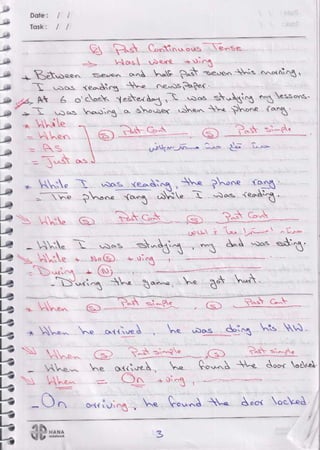 Date: / /
Task: / /
Past Continuous Tense
was / were + v ing
Between seven and half past seven this morning,
I was reading the newspaper.
At 6 o'clock yesterday, I was studying my lessons.
I was having a shower when the phone rang.
While
When
= As
= Just as
Past Cont
Past simple
While I was reading, the phone rang.
- The phone rang while I was reading.
While Ⓢ Past Cont Ⓢ Past Cont
- While I was studying, my dad was eating.
While + No Ⓢ + v ing
During + Ⓝ
- During the game, he got hurt.
When Ⓢ Past simple , Ⓢ Past Cont
When he arrived, he was doing his HW.
When Ⓢ Past simple Ⓢ Past simple
- When he arrived, he found the door locked
When = On + v ing,
- On arriving, he found the door locked
HANA
3